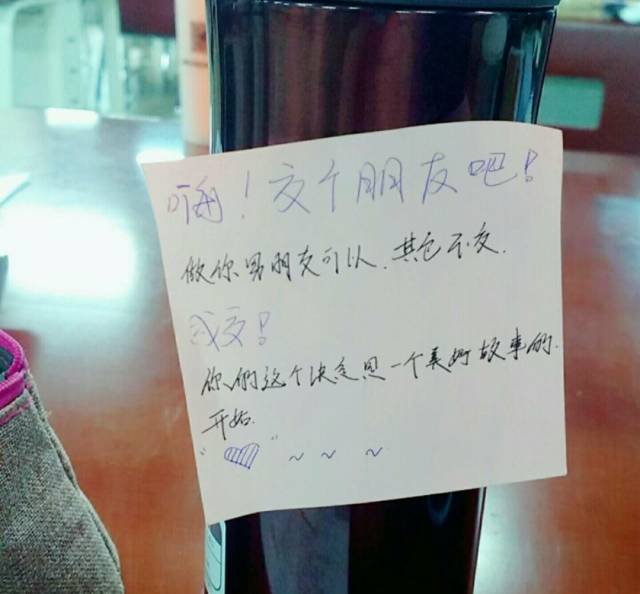 嗨！交个朋友吧！
做你男朋友可以.其它不交.
成交！
你们这个决定是一个美好故事的.
开始.
" " ~ ~ ~